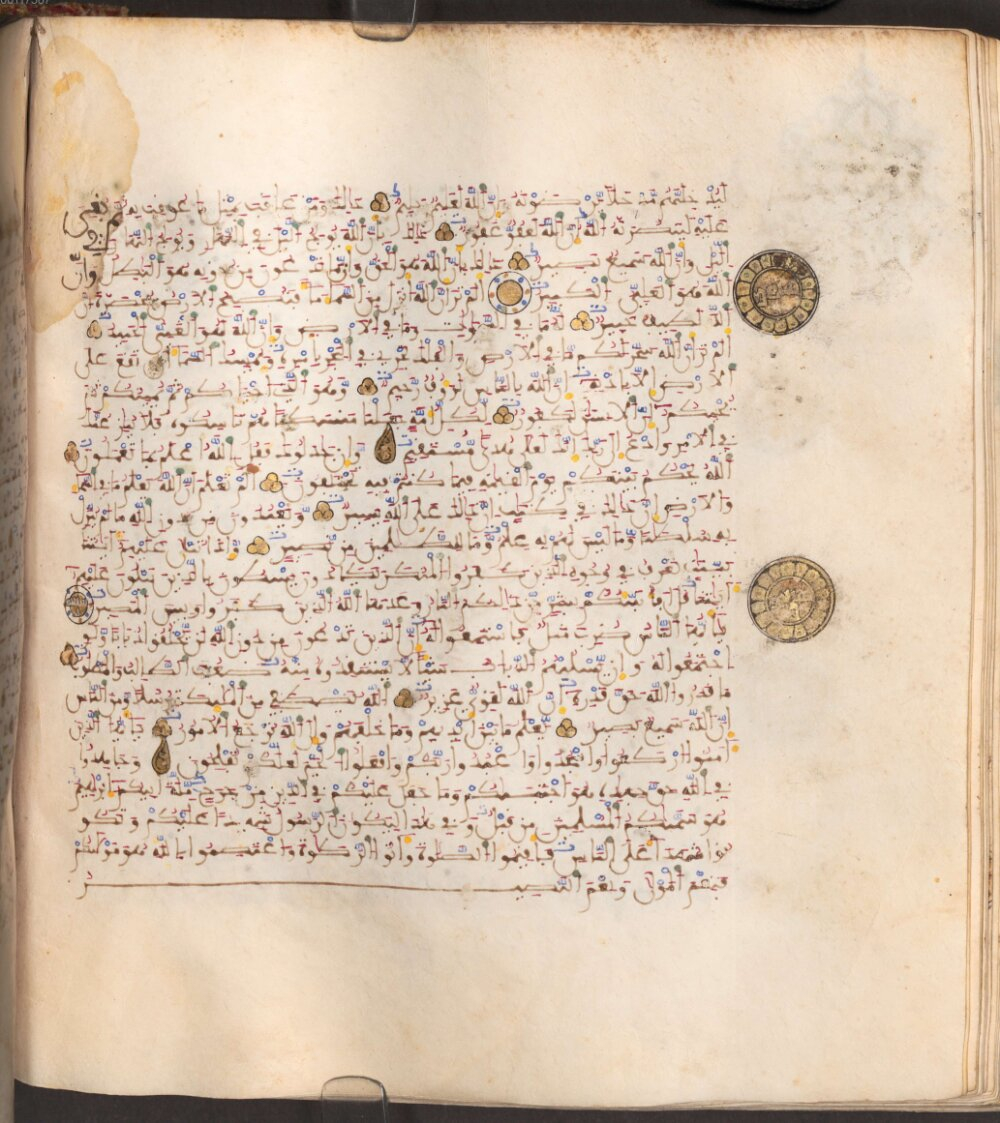 ليدخلنهم مدخلا يرضونه وان الله لعليم حليم ذلك ومن عاقب بمثل ما عوقب به ثم بغي
عليه لينصرنه الله ان الله لعفو غفور ذلك بان الله يولج اليل في النهار ويولج النهار في
اليل وان الله سميع بصير ذلك بان الله هو الحق وان ما تدعون من دونه هو البطل وان
الله هو العلي الكبير الم تر ان الله انزل من السماء ماء فتصبح الارض مخضرة ان
الله لطيف خبير له ما في السموات وما في الارض وان الله لهو الغني الحميد
الم تر ان الله سخر لكم ما في الارض والفلك تجري في البحر بامره ويمسك السماء ان تقع على
الارض الا باذنه ان الله بالناس لرءوف رحيم وهو الذي احياكم ثم يميتكم ثم
يحييكم ان الانسن لكفور لكل امة جعلنا منسكا هم ناسكوه فلا ينزعنك
في الامر وادع الى ربك انك لعلى هدى مستقيم وان جدلوك فقل الله اعلم بما تعملون
الله يحكم بينكم يوم القيمة فيما كنتم فيه تختلفون الم تعلم ان الله يعلم ما في السماء
والارض ان ذلك في كتب ان ذلك على الله يسير ويعبدون من دون الله ما لم ينزل
به سلطنا وما ليس لهم به علم وما للظلمين من نصير واذا تتلى عليهم ءايتنا
بينت تعرف في وجوه الذين كفروا المنكر يكادون يسطون بالذين يتلون عليهم
ءايتنا قل افانبئكم بشر من ذلكم النار وعدها الله الذين كفروا وبيس المصير
يايها الناس ضرب مثل فاستمعوا له ان الذين تدعون من دون الله لن يخلقوا ذبابا ولو
اجتمعوا له وان يسلبهم الذباب شيئا لا يستنقذوه منه ضعف الطالب والمطلوب
ما قدروا الله حق قدره ان الله لقوي عزيز الله يصطفي من الملئكة رسلا ومن الناس
ان الله سميع بصير يعلم ما بين ايديهم وما خلفهم والى الله ترجع الامور يايها الذين
ءامنوا اركعوا واسجدوا واعبدوا ربكم وافعلوا الخير لعلكم تفلحون وجهدوا
في الله حق جهاده هو اجتبيكم وما جعل عليكم في الدين من حرج ملة ابيكم ابرهيم
هو سميكم المسلمين من قبل وفي هذا ليكون الرسول شهيدا عليكم وتكو
نوا شهداء على الناس فاقيموا الصلوة وءاتوا الزكوة واعتصموا بالله هو موليكم
فنعم المولى ونعم النصير